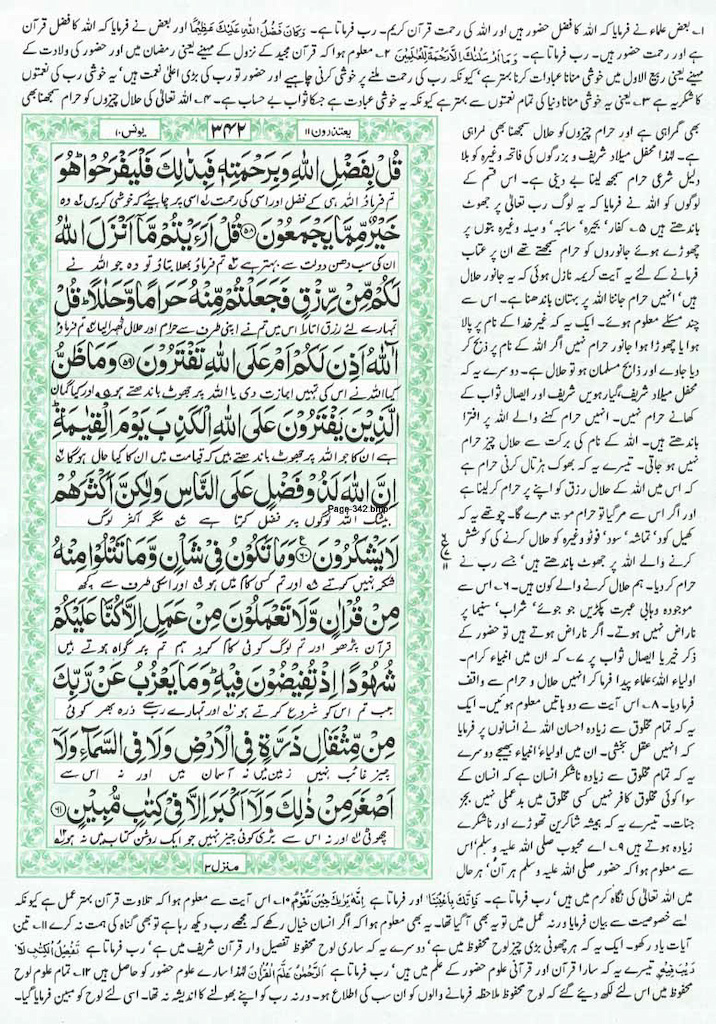 ۱؎ بعض علماء نے فرمایا کہ اللہ کا فضل حضور ہیں اور اللہ کی رحمت قرآن کریم۔ رب فرماتا ہے۔ وَكَانَ فَضْلُ اللهِ عَلَيْكَ عَظِيْمًا اور بعض نے فرمایا کہ اللہ کا فضل قرآن
ہے اور رحمت حضور ہیں۔ رب فرماتا ہے۔ وَمَا اَرْسَلْنٰكَ اِلَّا رَحْمَةً لِّلْعٰلَمِيْنَ ۲؎ معلوم ہوا کہ قرآن مجید کے نزول کے مہینے یعنی رمضان میں اور حضور کی ولادت کے
مہینے یعنی ربیع الاول میں خوشی منانا عبادات کرنا بہتر ہے' کیونکہ رب کی رحمت ملنے پر خوشی کرنی چاہیے اور حضور تو رب کی بڑی اعلیٰ نعمت ہیں' یہ خوشی رب کی نعمتوں
کا شکریہ ہے ۳؎ یعنی یہ خوشی منانا دنیا کی تمام نعمتوں سے بہتر ہے کیونکہ یہ خوشی عبادت ہے جسکا ثواب بے حساب ہے۔ ۴؎ اللہ تعالیٰ کی حلال چیزوں کو حرام سمجھنا بھی
یعتذرون ۱۱
۳۴۲
یونس ۱۰
قُلْ بِفَضْلِ اللهِ وَبِرَحْمَتِهٖ فَبِذٰلِكَ فَلْيَفْرَحُوْا ۭ هُوَ
تم فرماؤ اللہ ہی کے فضل اور اسی کی رحمت اسی پر چاہیئے کہ خوشی کریں وہ
خَيْرٌ مِّمَّا يَجْمَعُوْنَ ﴿۵۸﴾ قُلْ اَرَءَيْتُمْ مَّآ اَنْزَلَ اللهُ
ان کی سب دھن دولت سے بہتر ہے تم فرماؤ بھلا بتاؤ تو وہ جو اللہ نے
لَكُمْ مِّنْ رِّزْقٍ فَجَعَلْتُمْ مِّنْهُ حَرَامًا وَّحَلٰلًا ۭ قُلْ
تمہارے لئے رزق اتارا اس میں تم نے اپنی طرف سے حرام اور حلال ٹھہرا لیا تم فرماؤ
اٰۤللهُ اَذِنَ لَكُمْ اَمْ عَلَى اللهِ تَفْتَرُوْنَ ﴿۵۹﴾ وَمَا ظَنُّ
کیا اللہ نے اس کی تمہیں اجازت دی یا اللہ پر جھوٹ باندھتے ہو اور کیا گمان
الَّذِيْنَ يَفْتَرُوْنَ عَلَى اللهِ الْكَذِبَ يَوْمَ الْقِيٰمَةِ ۭ
ہے ان کا جو اللہ پر جھوٹ باندھتے ہیں کہ قیامت میں ان کا کیا حال ہوگا
اِنَّ اللهَ لَذُوْ فَضْلٍ عَلَى النَّاسِ وَلٰكِنَّ اَكْثَرَهُمْ
بیشک اللہ لوگوں پر فضل کرتا ہے مگر اکثر لوگ
Page-342.bmp
لَا يَشْكُرُوْنَ ﴿۶۰﴾ وَمَا تَكُوْنُ فِيْ شَاْنٍ وَّمَا تَتْلُوْا مِنْهُ
شکر نہیں کرتے اور تم کسی کام میں ہو اور اسکی طرف سے کچھ
مِنْ قُرْاٰنٍ وَّلَا تَعْمَلُوْنَ مِنْ عَمَلٍ اِلَّا كُنَّا عَلَيْكُمْ
قرآن پڑھو اور تم لوگ کوئی کام کرو ہم تم پر گواہ ہوتے ہیں
شُهُوْدًا اِذْ تُفِيْضُوْنَ فِيْهِ ۭ وَمَا يَعْزُبُ عَنْ رَّبِّكَ
جب تم اس کو شروع کرتے ہو اور تمہارے رب سے ذرہ بھر کوئی
مِنْ مِّثْقَالِ ذَرَّةٍ فِي الْاَرْضِ وَلَا فِي السَّمَآءِ وَلَآ
چیز غائب نہیں زمین میں نہ آسمان میں اور نہ اس سے
اَصْغَرَ مِنْ ذٰلِكَ وَلَآ اَكْبَرَ اِلَّا فِيْ كِتٰبٍ مُّبِيْنٍ ﴿۶۱﴾
چھوٹی اور نہ اس سے بڑی کوئی چیز نہیں جو ایک روشن کتاب میں نہ ہو
منزل ۳
بھی گمراہی ہے اور حرام چیزوں کو حلال سمجھنا بھی گمراہی
ہے۔ لہٰذا محفل میلاد شریف و بزرگوں کی فاتحہ وغیرہ کو بلا
دلیل شرعی حرام سمجھ لینا بے دینی ہے۔ اس قسم کے
لوگوں کو اللہ نے فرمایا کہ یہ لوگ رب تعالیٰ پر جھوٹ
باندھتے ہیں ۵؎ کفار' بحیرہ' سائبہ' وصیلہ وغیرہ بتوں پر
چھوڑے ہوئے جانوروں کو حرام سمجھتے تھے ان پر عتاب
فرمانے کے لئے یہ آیت کریمہ نازل ہوئی کہ یہ جانور حلال
ہیں' انہیں حرام جاننا اللہ پر بہتان باندھنا ہے۔ اس سے
چند مسئلے معلوم ہوئے۔ ایک یہ کہ غیر خدا کے نام پر پالا
ہوا یا چھوڑا ہوا جانور حرام نہیں اگر اللہ کے نام پر ذبح کر
دیا جاوے اور ذابح مسلمان ہو تو حلال ہے۔ دوسرے یہ کہ
محفل میلاد شریف' گیارہویں شریف اور ایصال ثواب کے
کھانے حرام نہیں۔ انہیں حرام کہنے والے اللہ پر افترا
باندھتے ہیں۔ اللہ کے نام کی برکت سے حلال چیز حرام
نہیں ہو جاتی۔ تیسرے یہ کہ بھوک ہڑتال کرنی حرام ہے
کہ اس میں اللہ کے حلال رزق کو اپنے پر حرام کر لینا ہے
اور اگر اس سے مر گیا تو حرام موت مرے گا۔ چوتھے یہ کہ
کھیل کود' تماشہ' سود' فوٹو وغیرہ کو حلال کرنے کی کوشش
کرنے والے اللہ پر جھوٹ باندھتے ہیں' جسے رب نے
حرام کر دیا۔ ہم حلال کرنے والے کون ہیں۔ ۶؎ اس سے
موجودہ وہابی عبرت پکڑیں جو جوئے' شراب' سنیما پر
ناراض نہیں ہوتے۔ اگر ناراض ہوتے ہیں تو حضور کے
ذکر خیر یا ایصال ثواب پر ۷؎ کہ ان میں انبیاء کرام۔
اولیاء اللہ' علماء پیدا فرما کر انہیں حلال و حرام سے واقف
فرما دیا۔ ۸؎ اس آیت سے دو باتیں معلوم ہوئیں۔ ایک
یہ کہ تمام مخلوق سے زیادہ احسان اللہ نے انسانوں پر فرمایا
کہ انہیں عقل بخشی۔ ان میں اولیاء' انبیاء بھیجے دوسرے
یہ کہ تمام مخلوق سے زیادہ ناشکر انسان ہے کہ انسان کے
سوا کوئی مخلوق کافر نہیں کسی مخلوق میں بدعملی نہیں بجز
جنات۔ تیسرے یہ کہ ہمیشہ شاکرین تھوڑے اور ناشکرے
زیادہ ہوتے ہیں ۹؎ اے محبوب صلی اللہ علیہ وسلم' اس
سے معلوم ہوا کہ حضور صلی اللہ علیہ وسلم ہر آن' ہر حال
میں اللہ تعالیٰ کی نگاہ کرم میں ہیں' رب فرماتا ہے۔ فَاِنَّكَ بِاَعْيُنِنَا اور فرماتا ہے اِنَّهٗ يَرٰىكَ حِيْنَ تَقُوْمُ ۱۰؎ اس آیت سے معلوم ہوا کہ تلاوت قرآن بہتر عمل ہے کیونکہ
اسے خصوصیت سے بیان فرمایا ورنہ عمل میں تو یہ بھی آ گیا تھا۔ یہ بھی معلوم ہوا کہ اگر انسان خیال رکھے کہ مجھے رب دیکھ رہا ہے تو بھی گناہ کی ہمت نہ کرے ۱۱؎ تین
آیات یاد رکھو۔ ایک یہ کہ ہر چھوٹی بڑی چیز لوح محفوظ میں ہے' دوسرے یہ کہ ساری لوح محفوظ تفصیل وار قرآن شریف میں ہے' رب فرماتا ہے تَفْصِيْلَ الْكِتٰبِ لَا
رَيْبَ فِيْهِ تیسرے یہ کہ سارا قرآن اور قرآنی علوم حضور کے علم میں ہیں' رب فرماتا ہے اَلرَّحْمٰنُ عَلَّمَ الْقُرْاٰنَ لہٰذا سارے علوم حضور کو حاصل ہیں ۱۲؎ تمام علوم لوح
محفوظ میں اس لئے لکھ دیئے گئے کہ لوح محفوظ ملاحظہ فرمانے والوں کو ان سب کی اطلاع ہو۔ ورنہ رب کو اپنے بھولنے کا اندیشہ نہ تھا۔ اسی لئے لوح کو مبین فرمایا گیا۔